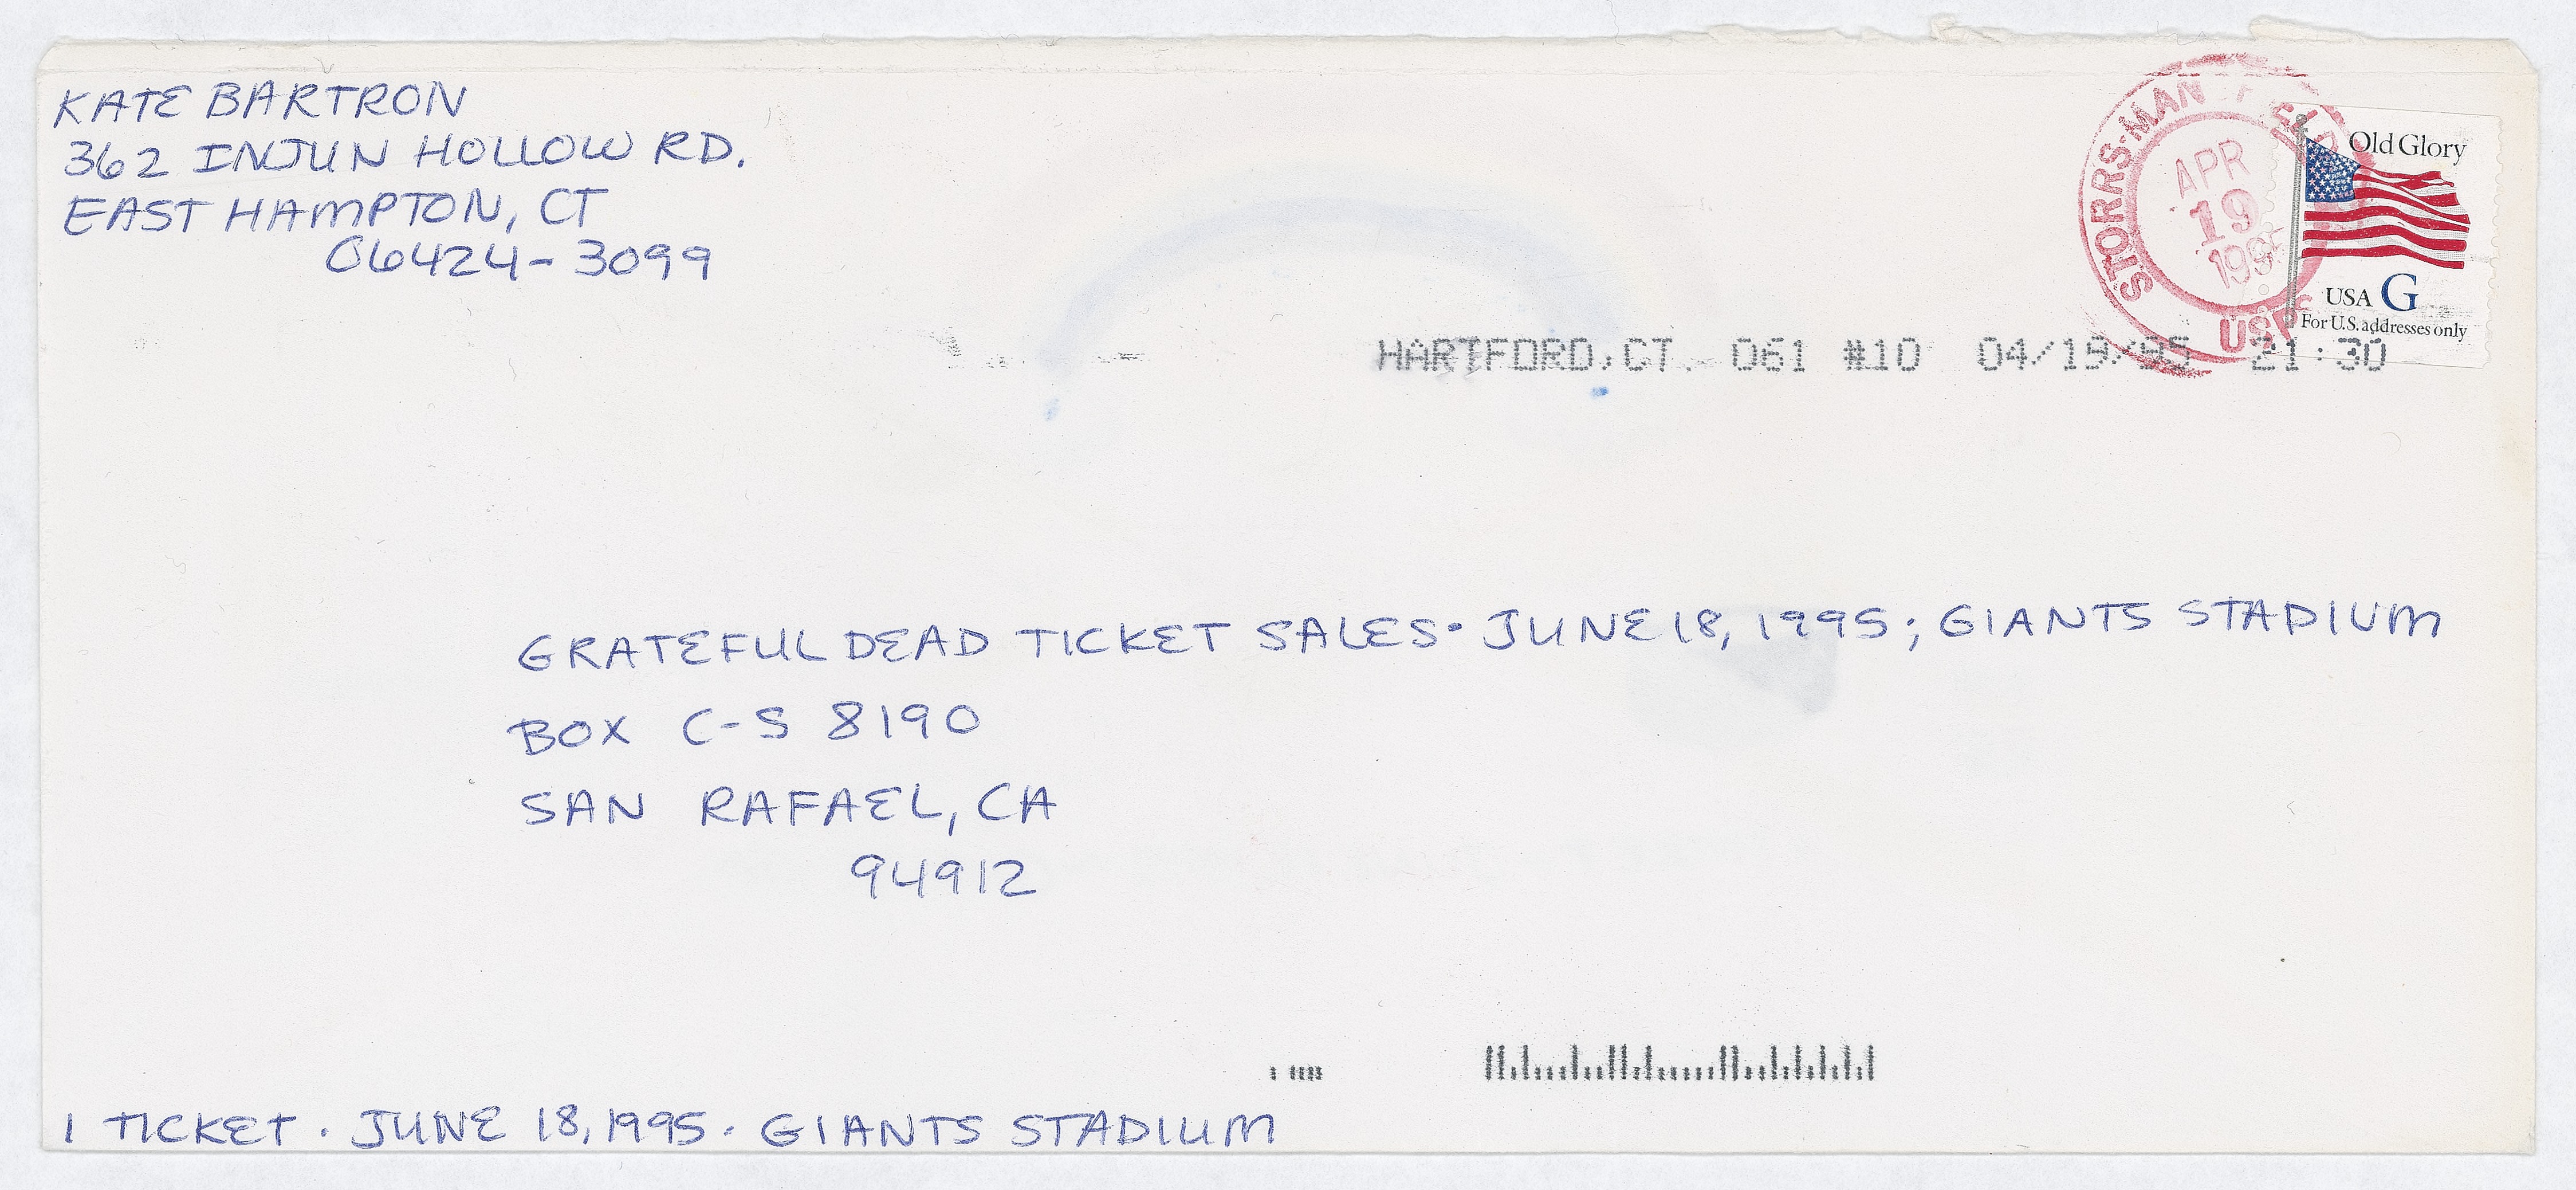 KATE BARTRON
362 INJUN HOLLOW RD.
EAST HAMPTON, CT
06424-3099
STORRS-MANSFIELD
APR
19
1995
USPS
Old Glory
USA G
For U.S. addresses only
HARTFORD, CT. 061 #10 04/19/95 21:30
GRATEFUL DEAD TICKET SALES · JUNE 18, 1995; GIANTS STADIUM
BOX C-S 8190
SAN RAFAEL, CA
94912
1 TICKET · JUNE 18, 1995 · GIANTS STADIUM